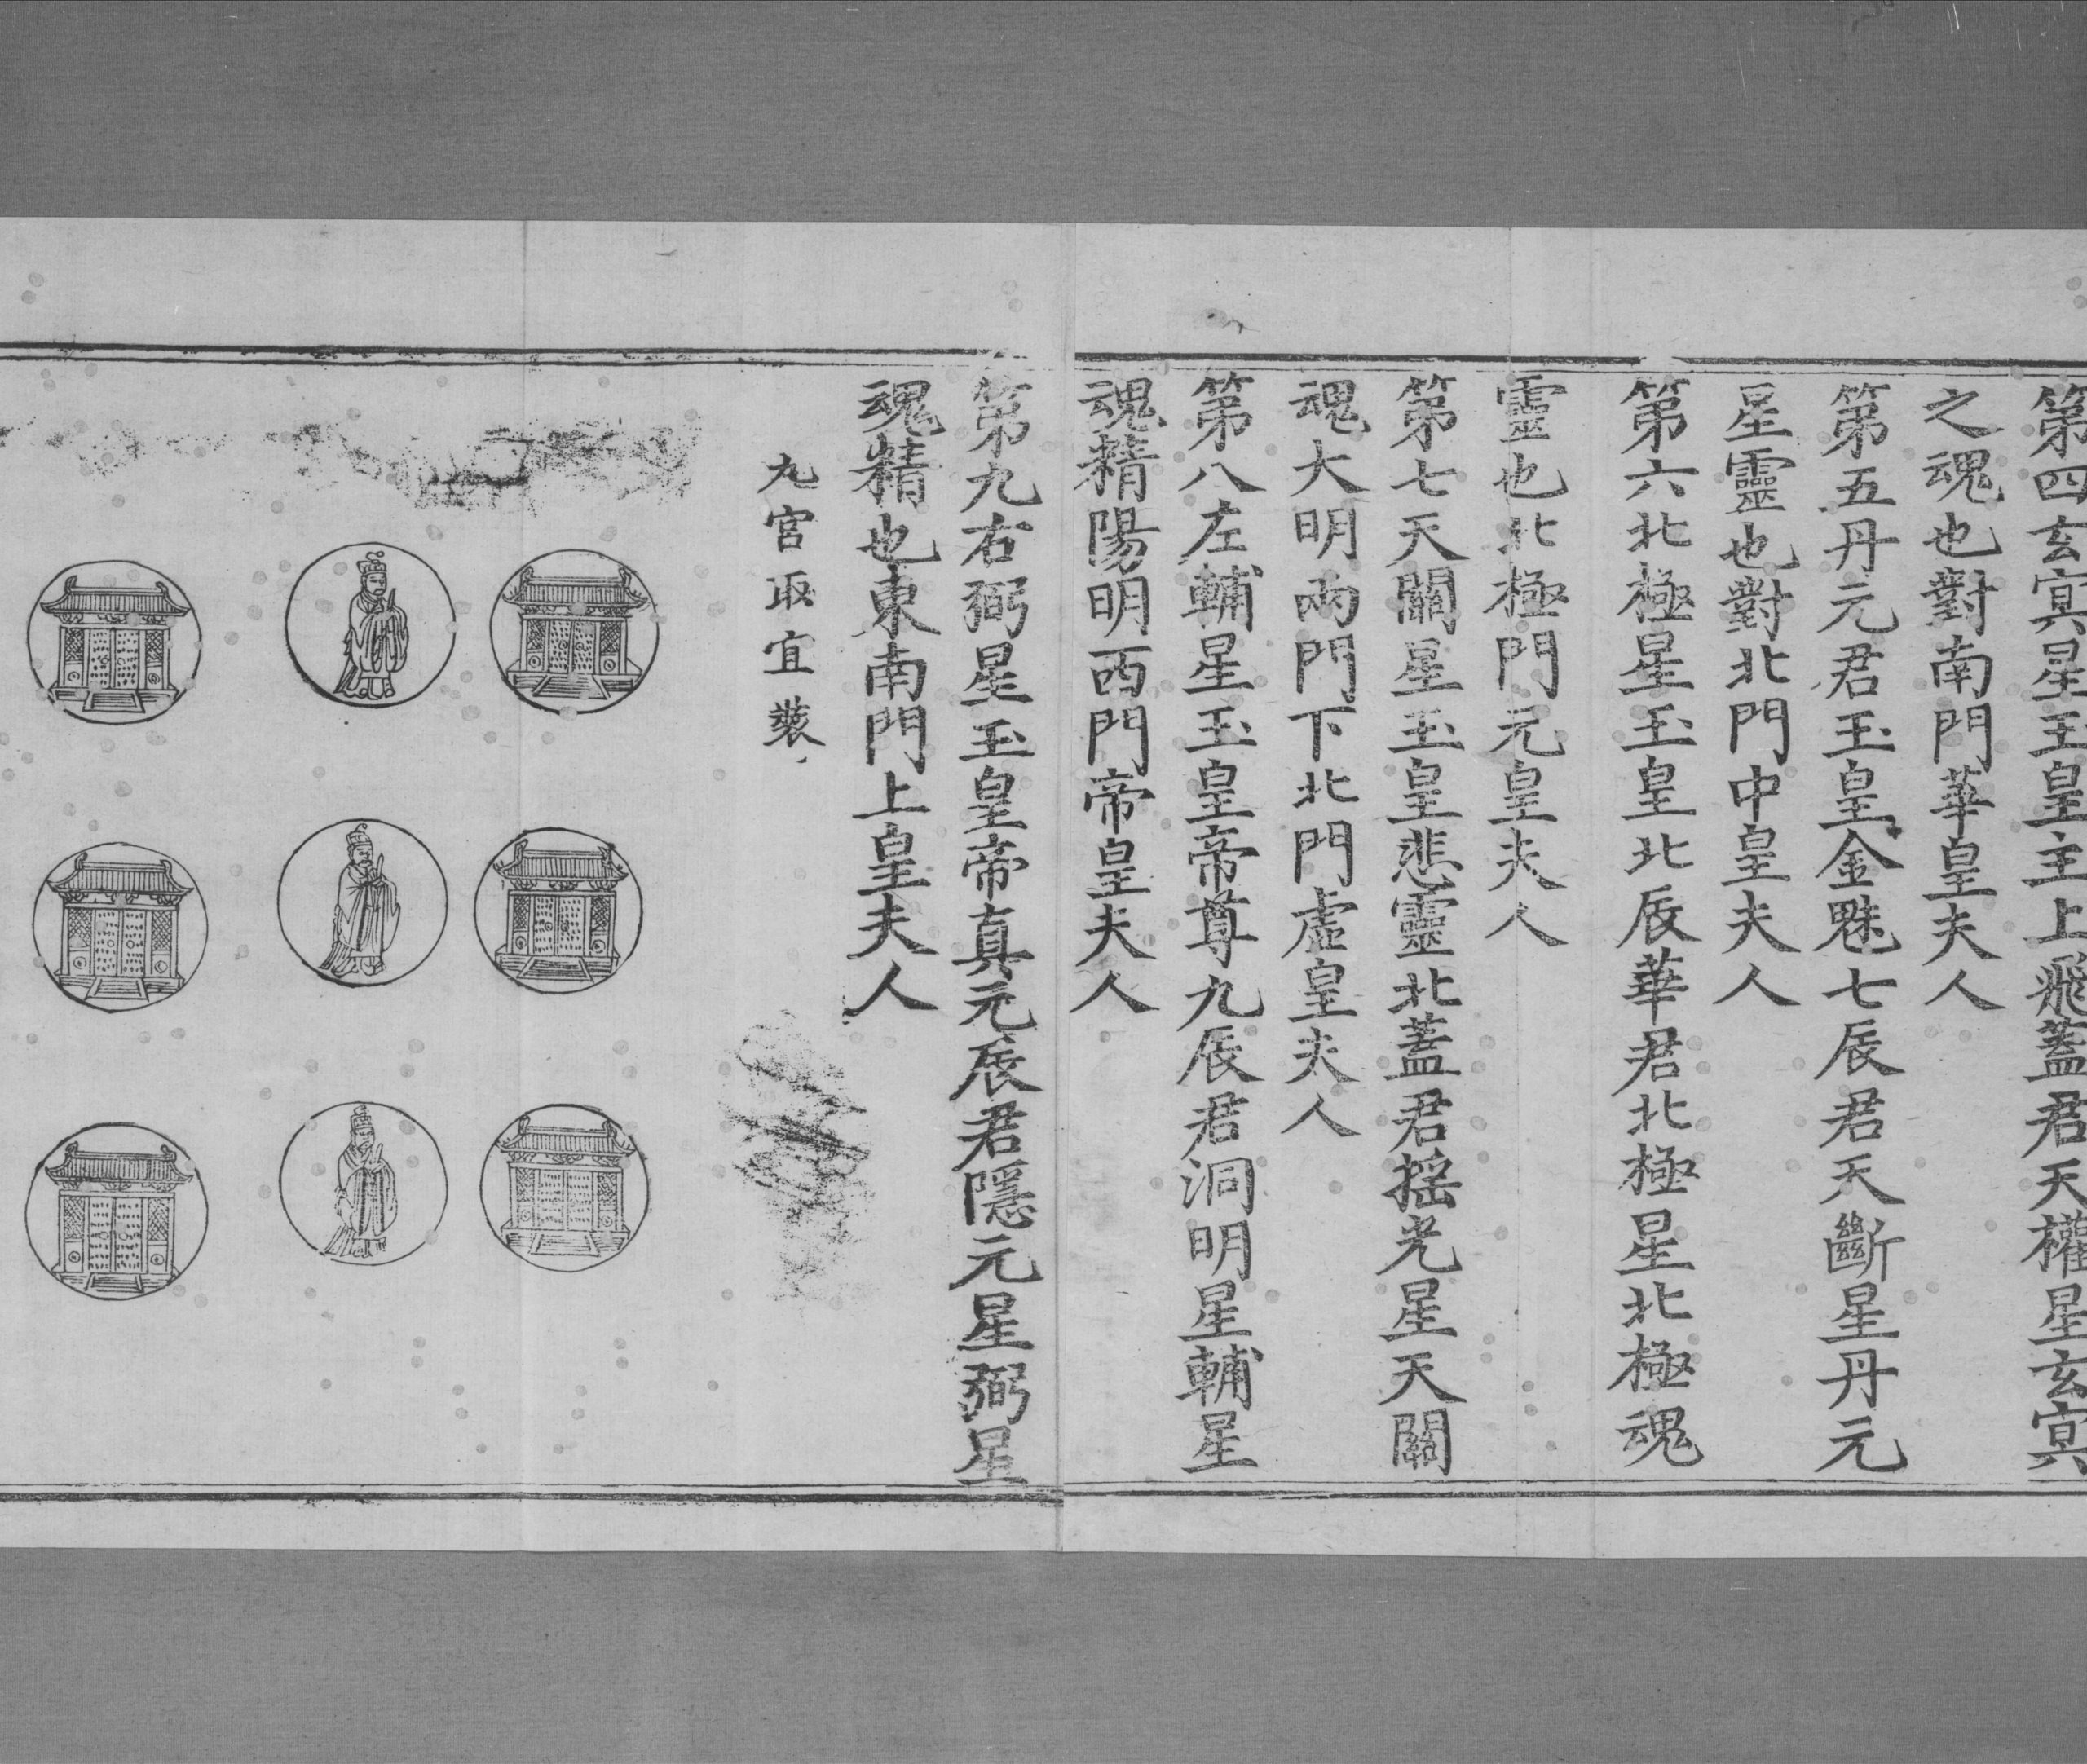 第四玄㝠星玉皇主上飛蓋君天權星玄㝠
之魂也對南門華皇夫人
第五丹元君玉皇金魁七辰君天斷星丹元
星靈也對北門中皇夫人
第六北極星玉皇北辰華君北極星北極魂
靈也北極門元皇夫人
第七天關星玉皇悲靈北蓋君揺光星天關
魂大明兩門下北門虛皇夫人
第八左輔星玉皇帝尊九辰君洞明星輔星
魂精陽明西門帝皇夫人
第九右弼星玉皇帝真元辰君隱元星弼星
魂精也東南門上皇夫人
九宮取宜裝